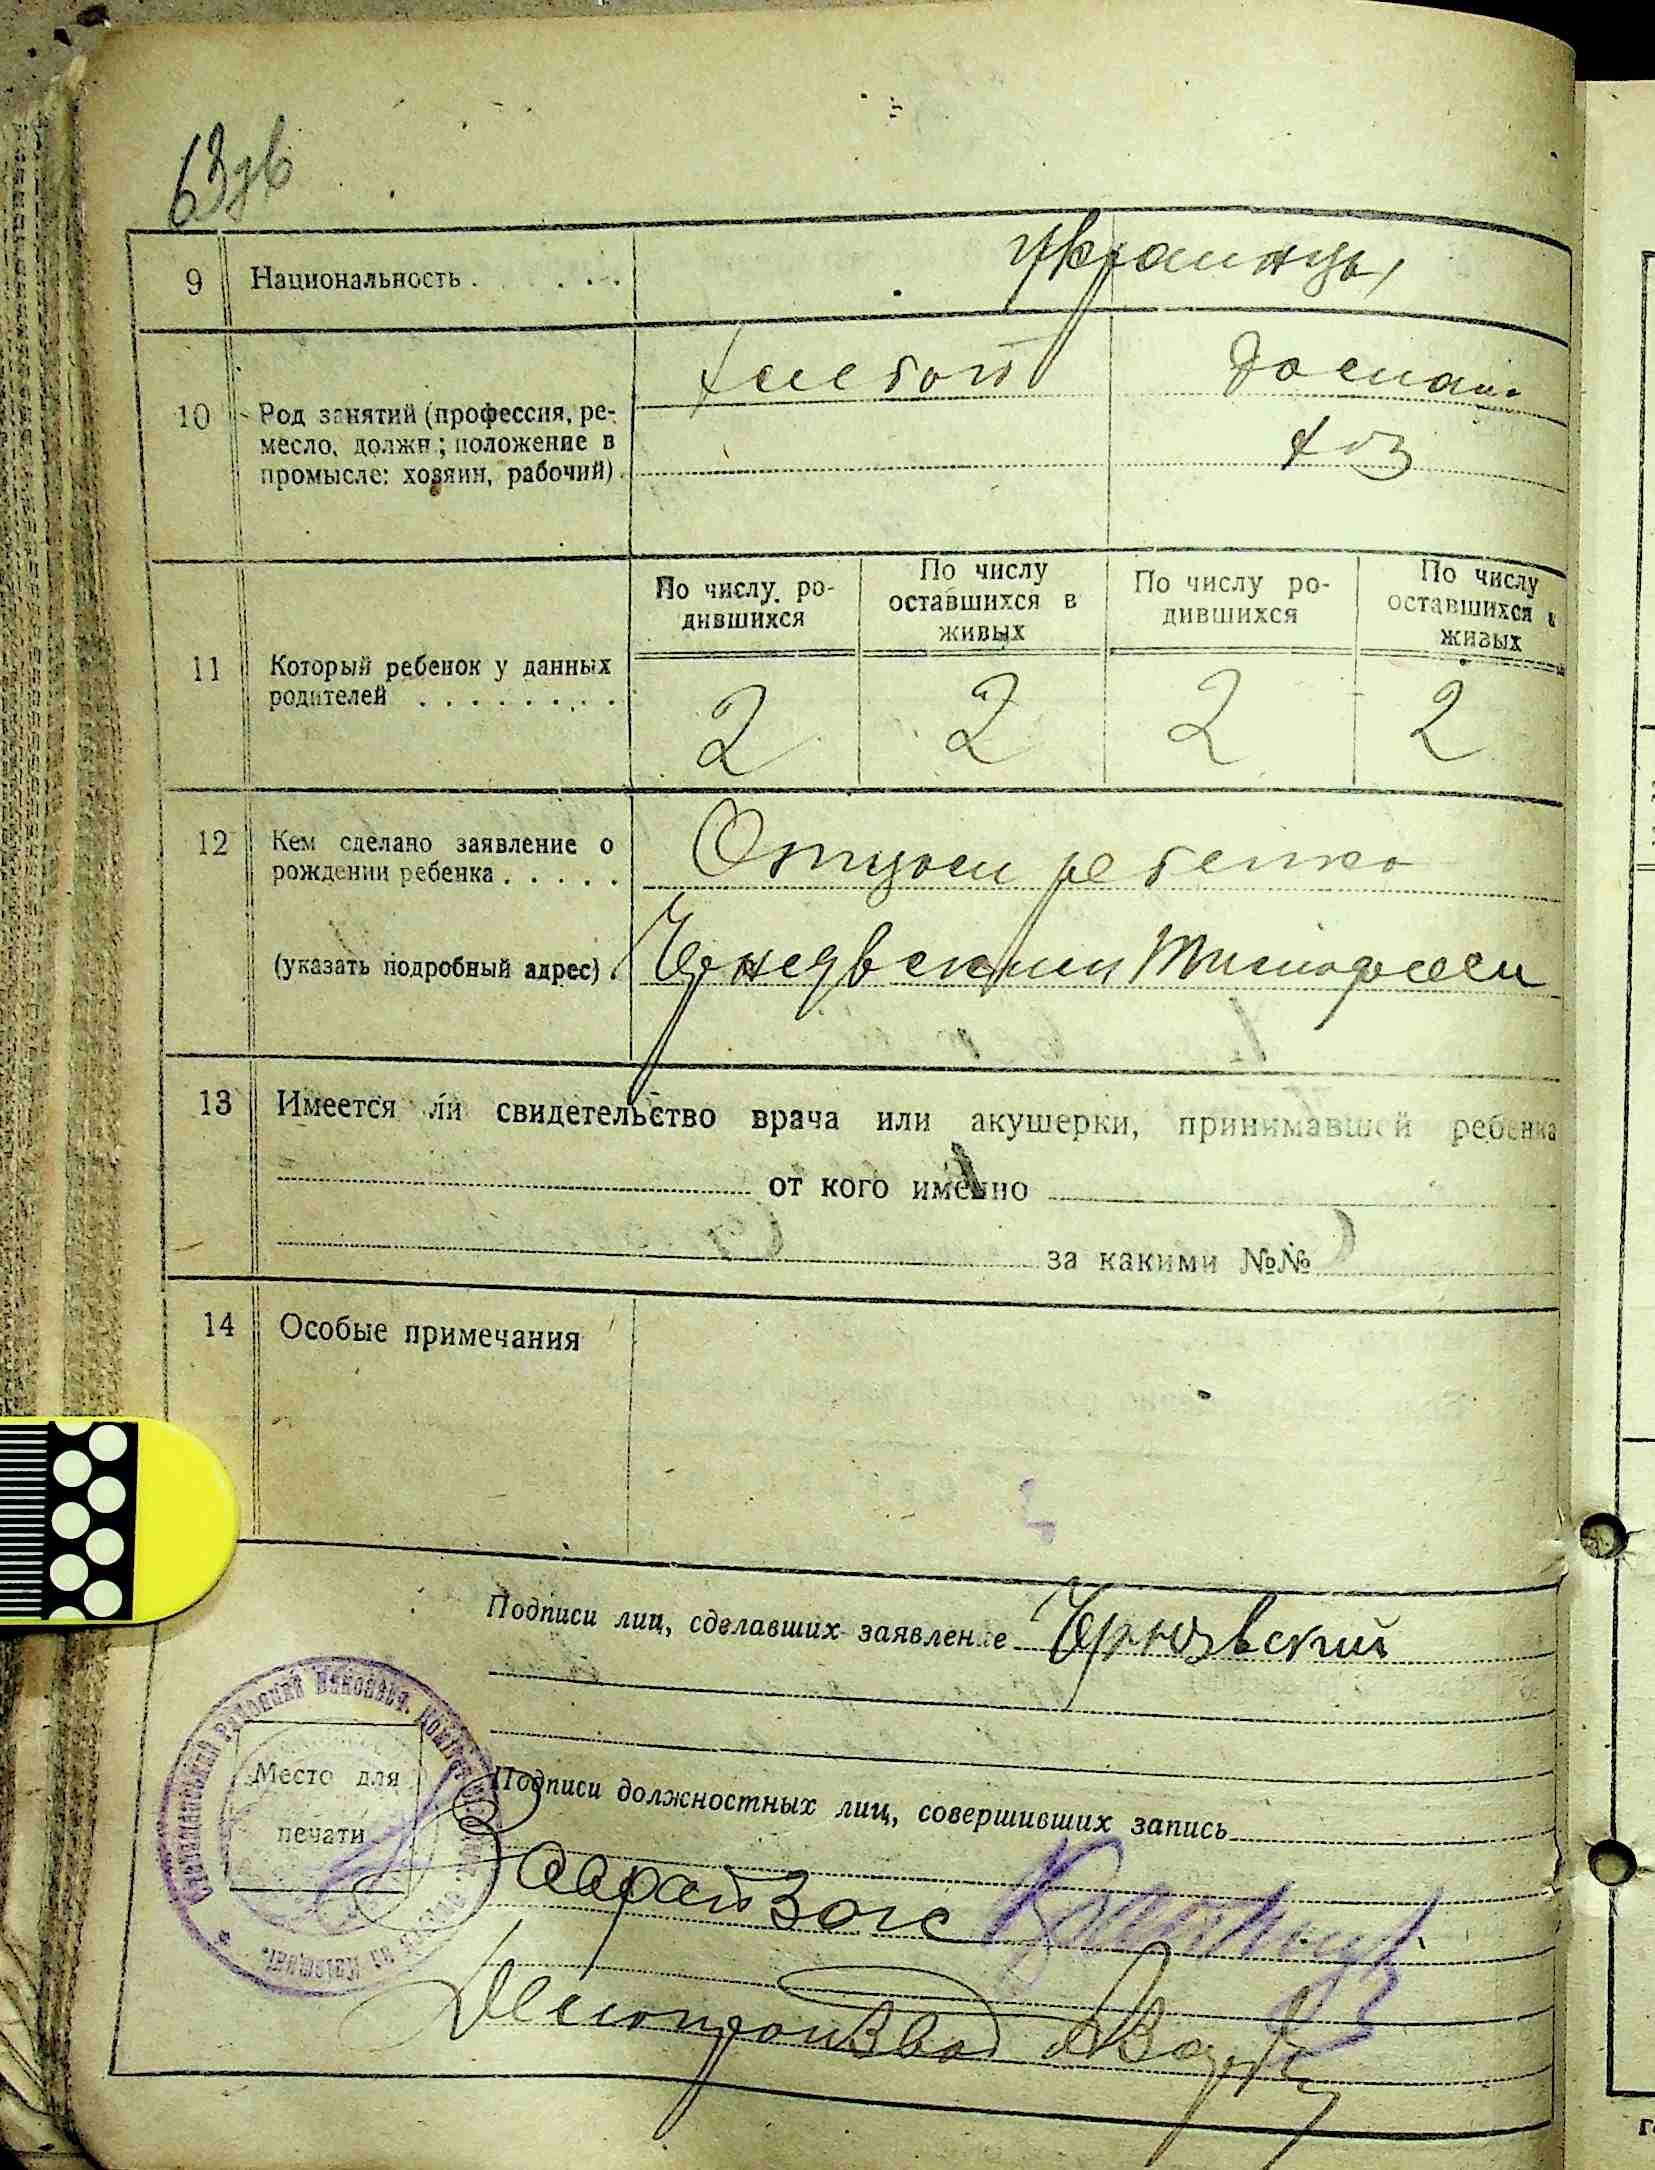 63 об
9 Национальность . . . . . украинцы
10 Род занятий (профессия, ре-
месло, должн.; положение в
промысле: хозяин, рабочий).
хлебоп домаш.
хоз
11 Который ребенок у данных
родителей . . . . . . . . .
По числу ро-
дившихся
По числу
оставшихся в
живых
По числу ро-
дившихся
По числу
оставшихся в
живых
2 2 2 2
12 Кем сделано заявление о
рождении ребенка . . . . .
Отцом ребенка
(указать подробный адрес).
Тимофеем
13 Имеется ли свидетельство врача или акушерки, принимавшей ребенка
от кого именно
за какими №№
14 Особые примечания
Подписи лиц, сделавших заявление
Место для
печати
Подписи должностных лиц, совершивших запись
Заврай Загс
Делопроизвод